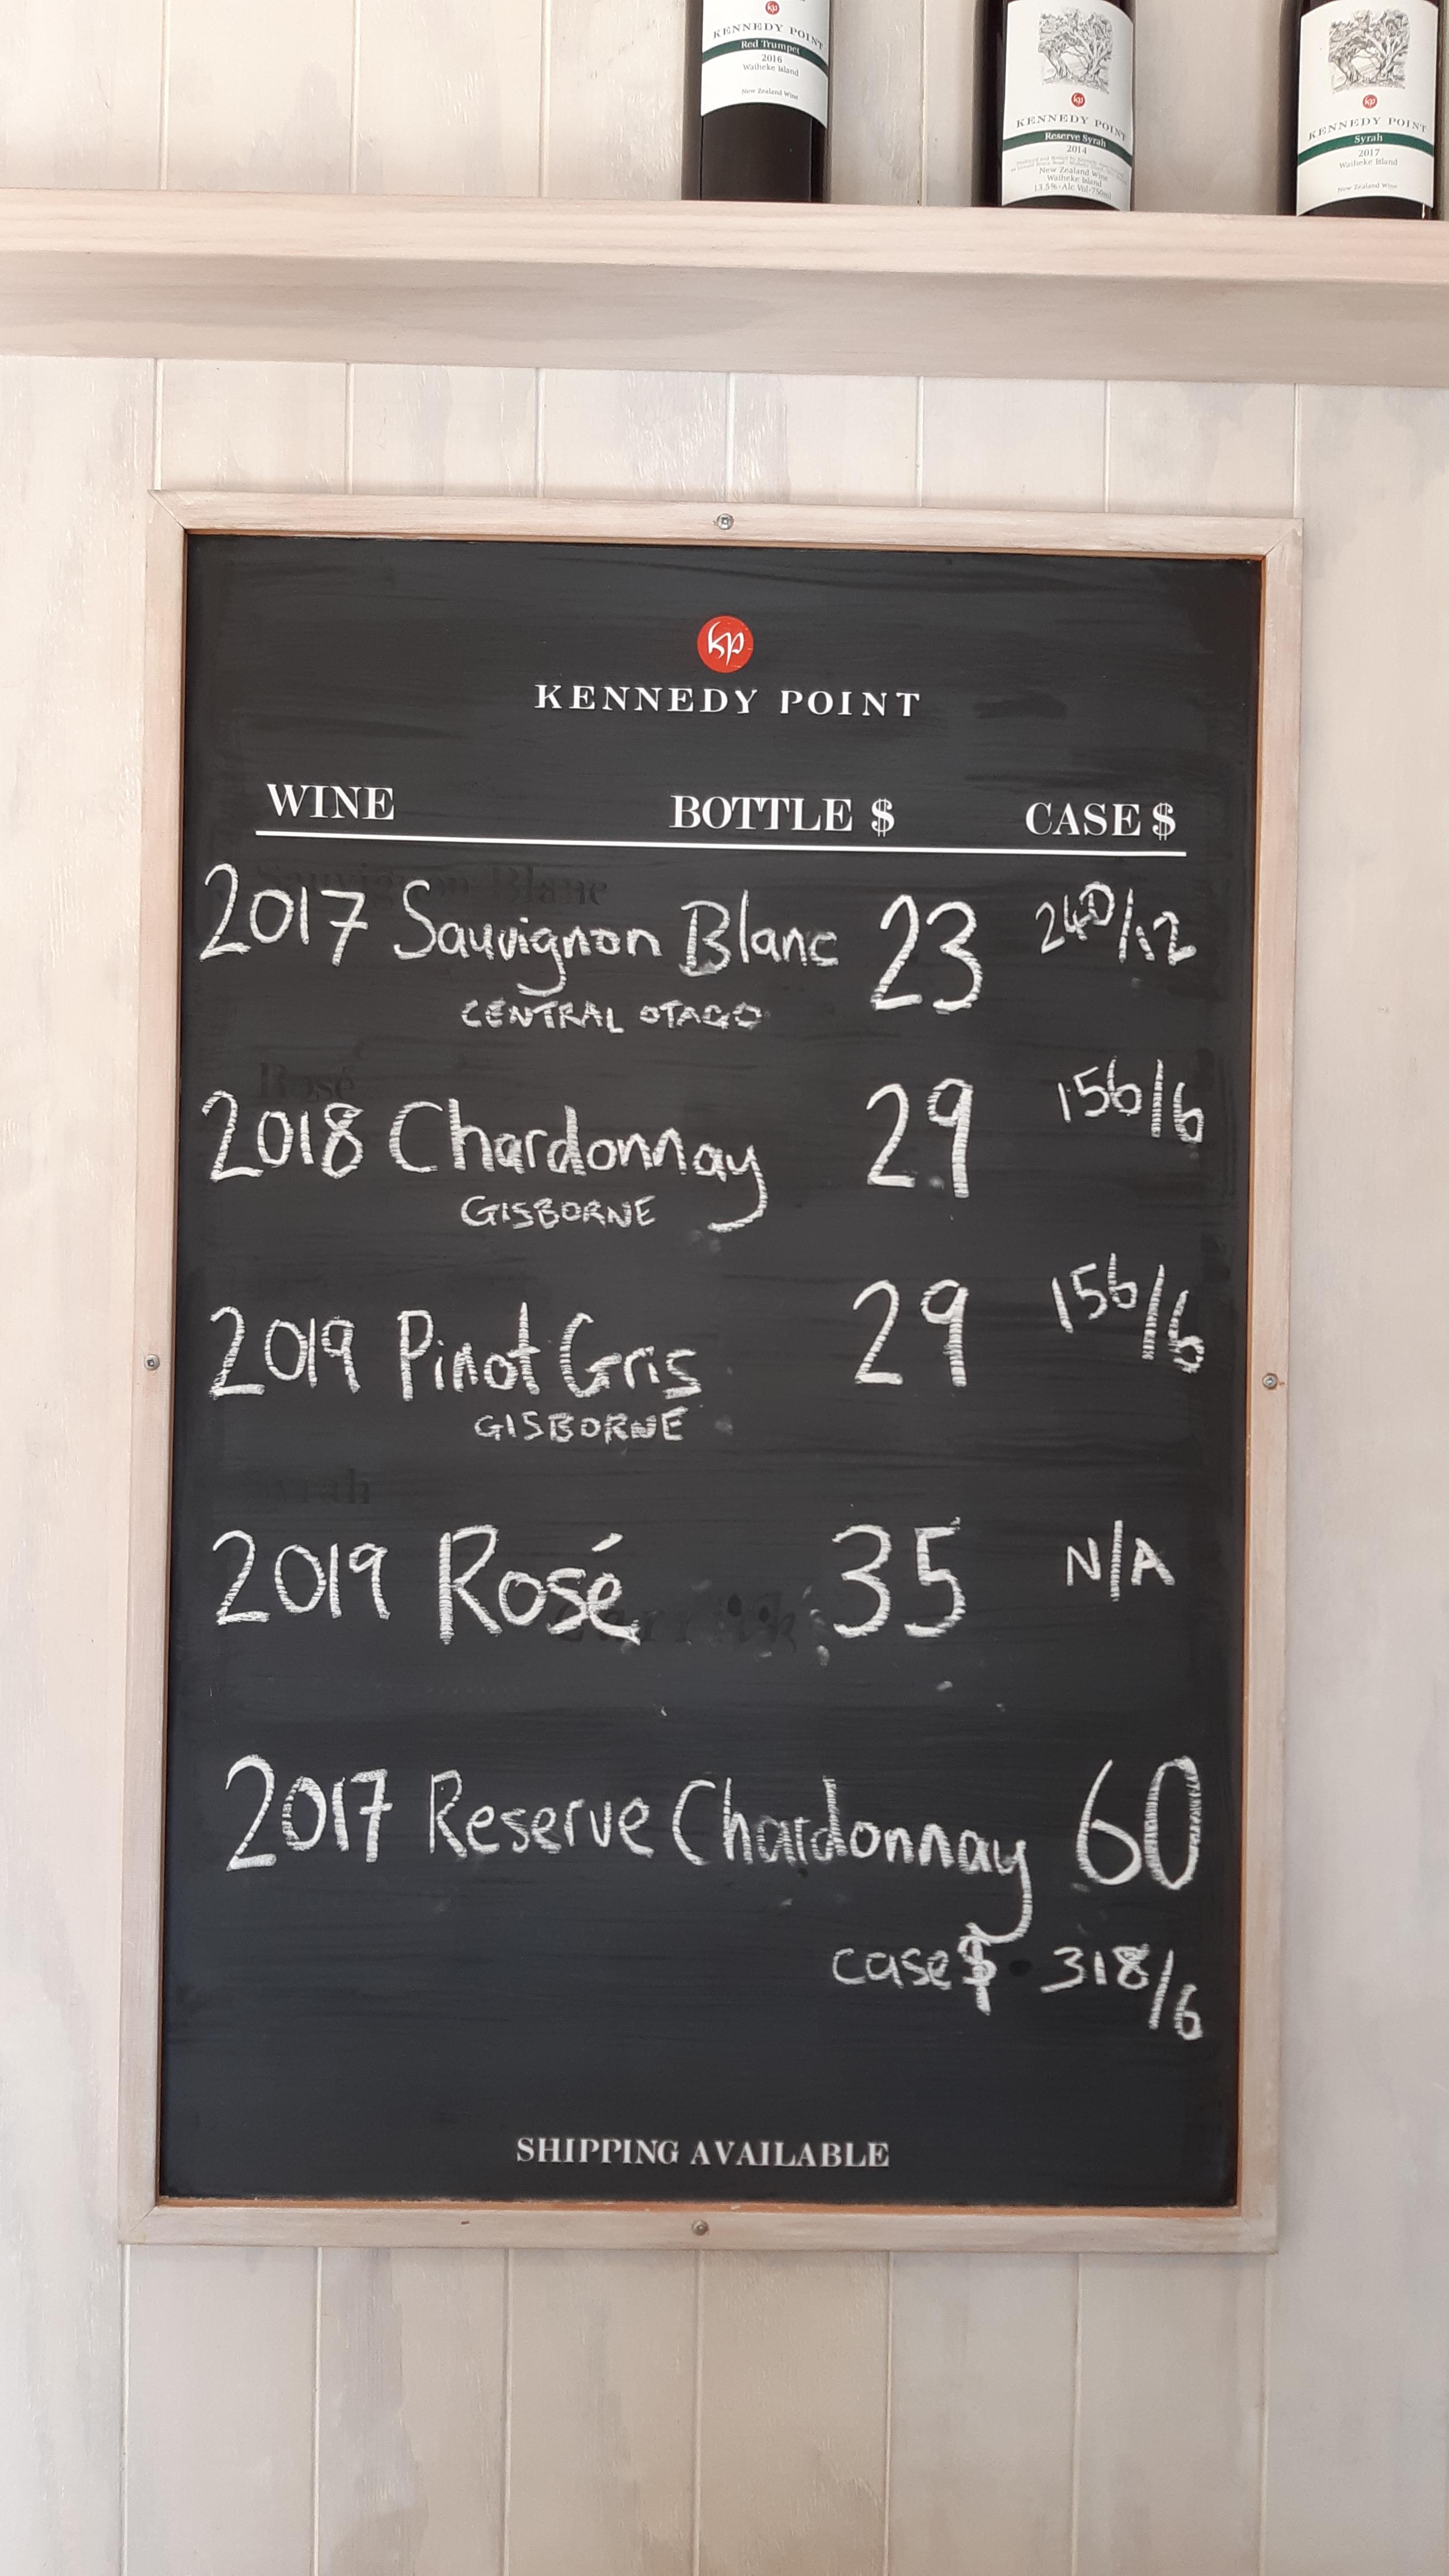 KENNEDY POINT
Red Trumpet
2016
Waiheke Island
New Zealand Wine
kp
KENNEDY POINT
Reserve Syrah
2014
New Zealand Wine
Waiheke Island
13.5% Alc Vol 750ml
kp
KENNEDY POINT
Syrah
2017
Waiheke Island
New Zealand Wine
kp
KENNEDY POINT
WINE BOTTLE $ CASE $
2017 Sauvignon Blanc 23 240/12
CENTRAL OTAGO
2018 Chardonnay 29 156/6
GISBORNE
2019 Pinot Gris 29 156/6
GISBORNE
2019 Rosé 35 N/A
2017 Reserve Chardonnay 60
case $ 318/6
SHIPPING AVAILABLE